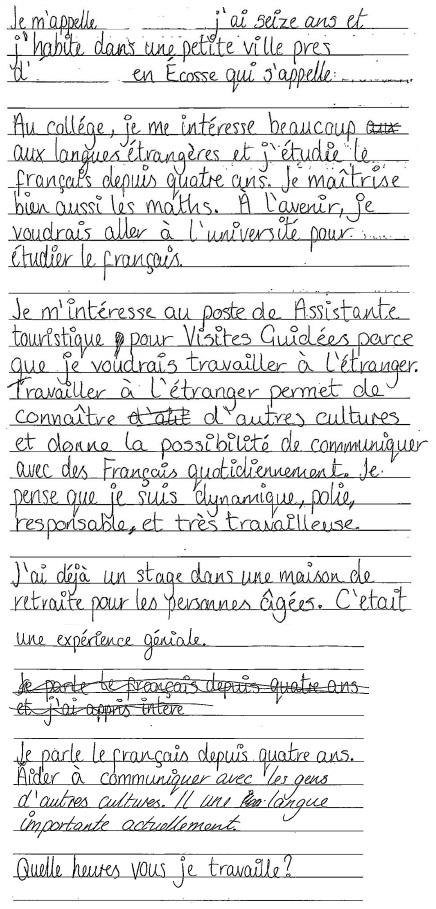 Je m'appelle j'ai seize ans et
j'habite dans une petite ville pres
d' en Écosse qui s'appelle
Au collége, je me intéresse beaucoup aux
aux langues étrangères et j'étudie le
français depuis quatre ans. Je maîtrise
bien aussi les maths. À l'avenir, je
voudrais aller à l'université pour
étudier le français.
Je m'intéresse au poste de Assistante
touristique pour Visites Guidées parce
que je voudrais travailler à l'étranger.
Travailler à l'étranger permet de
connaître d'autres cultures
et donne la possibilité de communiquer
avec des Français quotidiennement. Je
pense que je suis dynamique, polie,
responsable, et très travailleuse.
J'ai déjà un stage dans une maison de
retraite pour les personnes âgées. C'etait
une expérience géniale.
Je parle le français depuis quatre ans
et j'ai appris intere
Je parle le français depuis quatre ans.
Aider à communiquer avec les gens
d'autres cultures. Il une langue
importante actuellement.
Quelle heures vous je travaille?